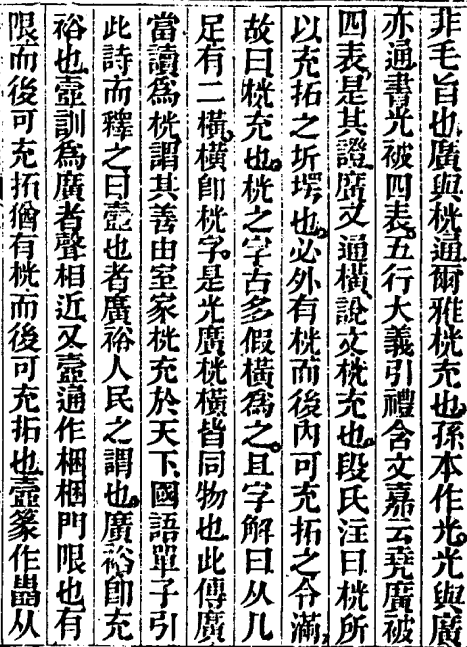 非毛旨也廣與桄通爾雅桄充也孫本作光光與廣
亦通書光被四表五行大義引禮含文嘉云堯廣被
四表是其證廣又通橫說文桄充也段氏注曰桄所
以充拓之圻堮也必外有桄而後內可充拓之令滿
故曰桄充也桄之字古多假橫爲之且字解曰从几
足有二橫橫卽桄字是光廣桄橫皆同物也此傳廣
當讀爲桄謂其善由室家桄充於天下國語單子引
此詩而釋之曰壼也者廣裕人民之謂也廣裕卽充
裕也壼訓爲廣者聲相近又壼通作梱梱門限也有
限而後可充拓猶有桄而後可充拓也壼篆作𡈼从